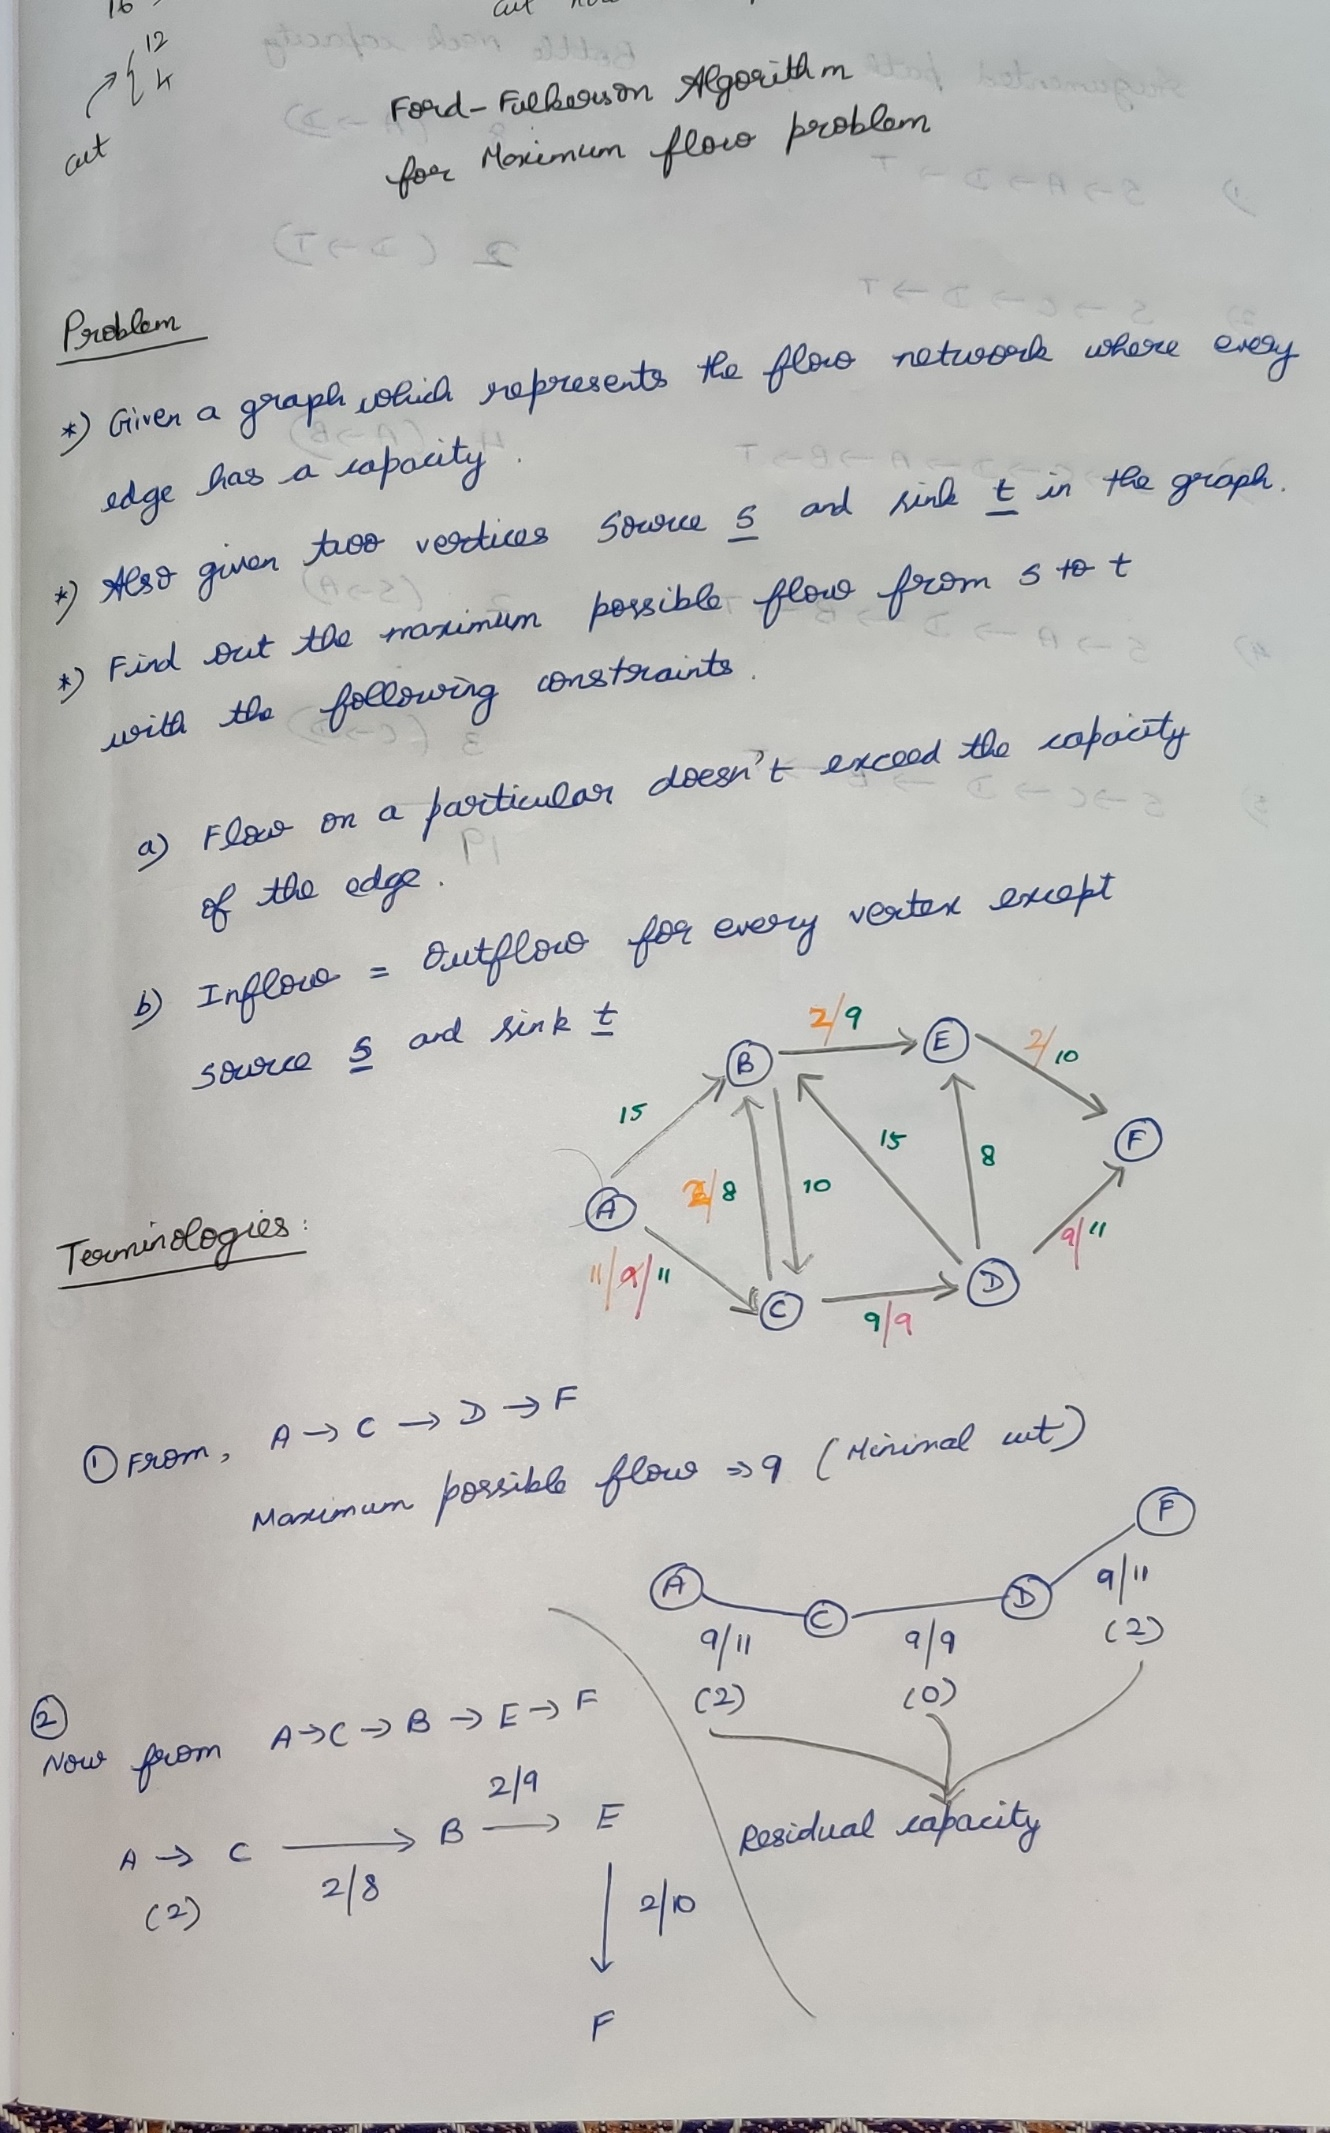 16
cut
12
4
cut
Ford-Fulkerson Algorithm
for Maximum flow problem
Problem
*) Given a graph which represents the flow network where every
edge has a capacity.
*) Also given two vertices source s and sink t in the graph.
*) Find out the maximum possible flow from s to t
with the following constraints.
a) Flow on a particular doesn't exceed the capacity
of the edge.
b) Inflow = Outflow for every vertex except
source s and sink t
2/9
B
E
2/10
15
15
8
F
A
2/8
10
9/11
Terminologies:
11/9/11
C
9/9
D
① From, A → C → D → F
Maximum possible flow ⇒ 9 (Minimal cut)
F
A
C
D
9/11
9/11
9/9
(2)
(2)
(0)
Residual capacity
②
Now from A→C→B→E→F
2/9
A → C → B → E
(2)
2/8
2/10
F